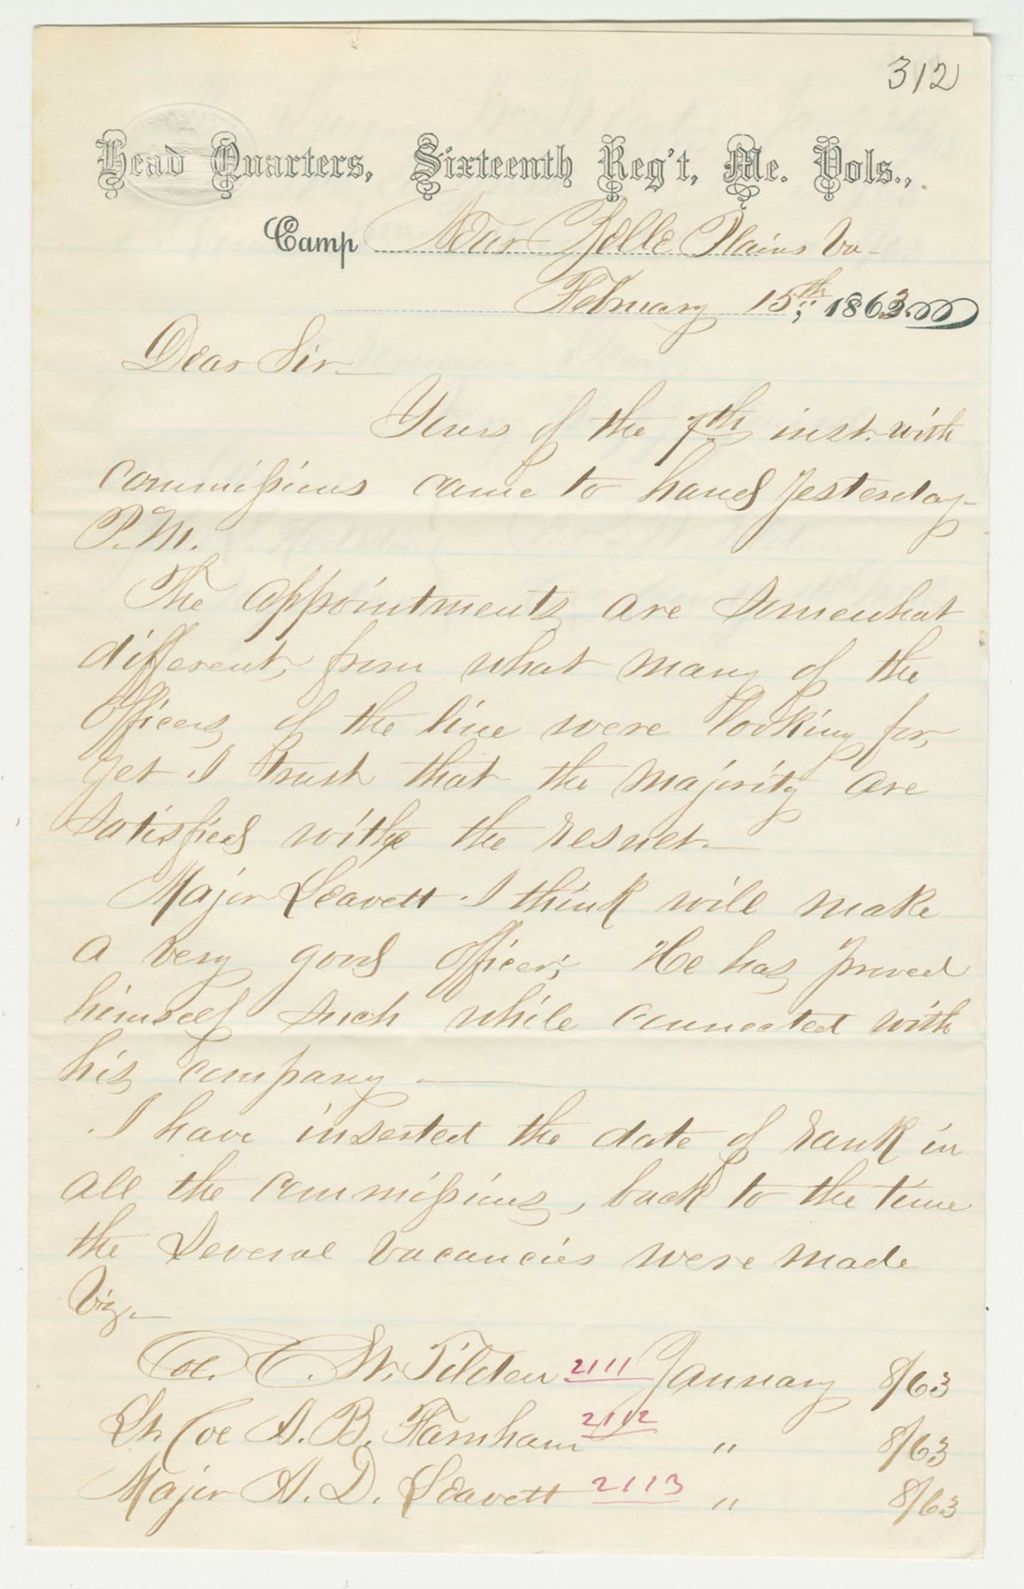 312
Head Quarters, Sixteenth Reg't, Me. Vols.,
Camp Near Belle Plains Va-
February 15th, 1863
Dear Sir-
Yours of the 7th inst. with
commissions came to hand yesterday
P.M.
The appointments are somewhat
different, from what many of the
Officers of the line were looking for,
yet I trust that the majority are
satisfied with the result.
Major Leavett I think will make
a very good officer; He has proved
himself such while connected with
his company-
I have inserted the date of rank in
all the commissions, back to the time
the several vacancies were made
Viz-
Col. C. W. Tilden 2111 January 8/63
Lt. Col A. B. Farnham 2112 " 8/63
Major A. D. Leavett 2113 " 8/63